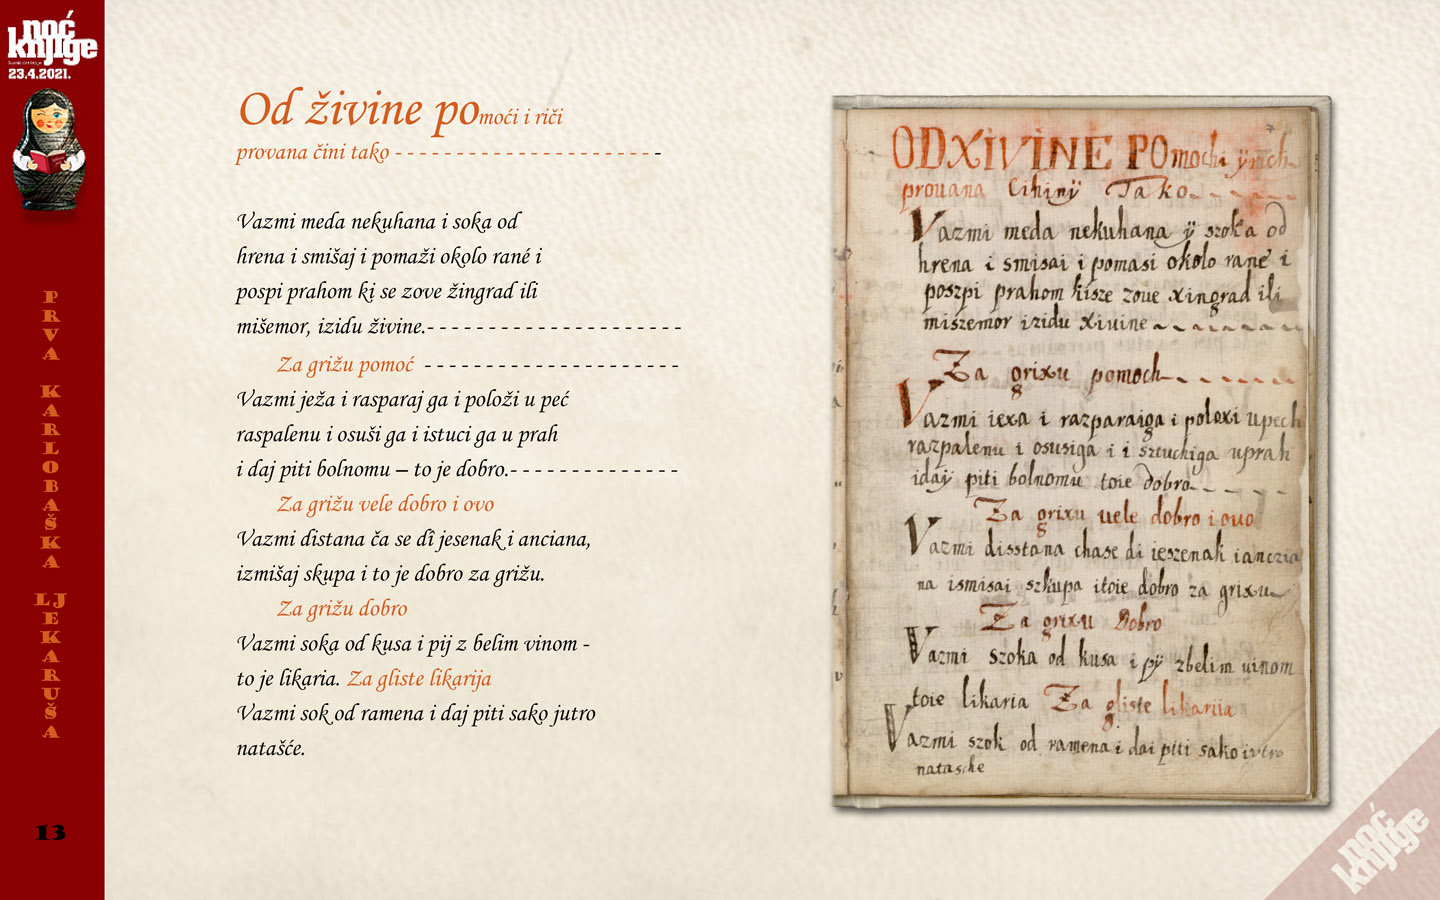 noć
knjige
23.4.2021.
PRVA KARLOBAŠKA LJEKARUŠA
13
Od živine pomoći i riči
provana čini tako - - - - - - - - - - - - - - - - - - - - - -
Vazmi meda nekuhana i soka od
hrena i smišaj i pomaži okolo rané i
pospi prahom ki se zove žingrad ili
mišemor, izidu živine.- - - - - - - - - - - - - - - - - - - - -
Za grižu pomoć - - - - - - - - - - - - - - - - - - - - -
Vazmi ježa i rasparaj ga i položi u peć
raspalenu i osuši ga i istuci ga u prah
i daj piti bolnomu – to je dobro.- - - - - - - - - - - - - -
Za grižu vele dobro i ovo
Vazmi distana ča se dî jesenak i anciana,
izmišaj skupa i to je dobro za grižu.
Za grižu dobro
Vazmi soka od kusa i pij z belim vinom -
to je likaria. Za gliste likarija
Vazmi sok od ramena i daj piti sako jutro
natašće.
ODXIVINE POmochi ÿ rich
prouana Cihinÿ Tako
Vazmi meda nekuhana ÿ szoka od
hrena i smisai i pomasi okolo rane i
poszpi prahom kisze zove xingrad ili
miszemor izidu xiuine
Za grixu pomoch
Vazmi iexa i razparaiga i poloxi upech
razpalenu i osusiga i i sztuchiga uprah
idaÿ piti bolnomu toie dobro
Za grixu uele dobro i ouo
Vazmi disstana chase di ieszenak ianczia
na ismisai szkupa itoie dobro za grixu
Za grixu Dobro
Vazmi szoka od kusa i pÿ zbelim uinom
toie likaria Za gliste likariia
Vazmi szok od ramena i dai piti sako iutro
natasche
noć
knjige